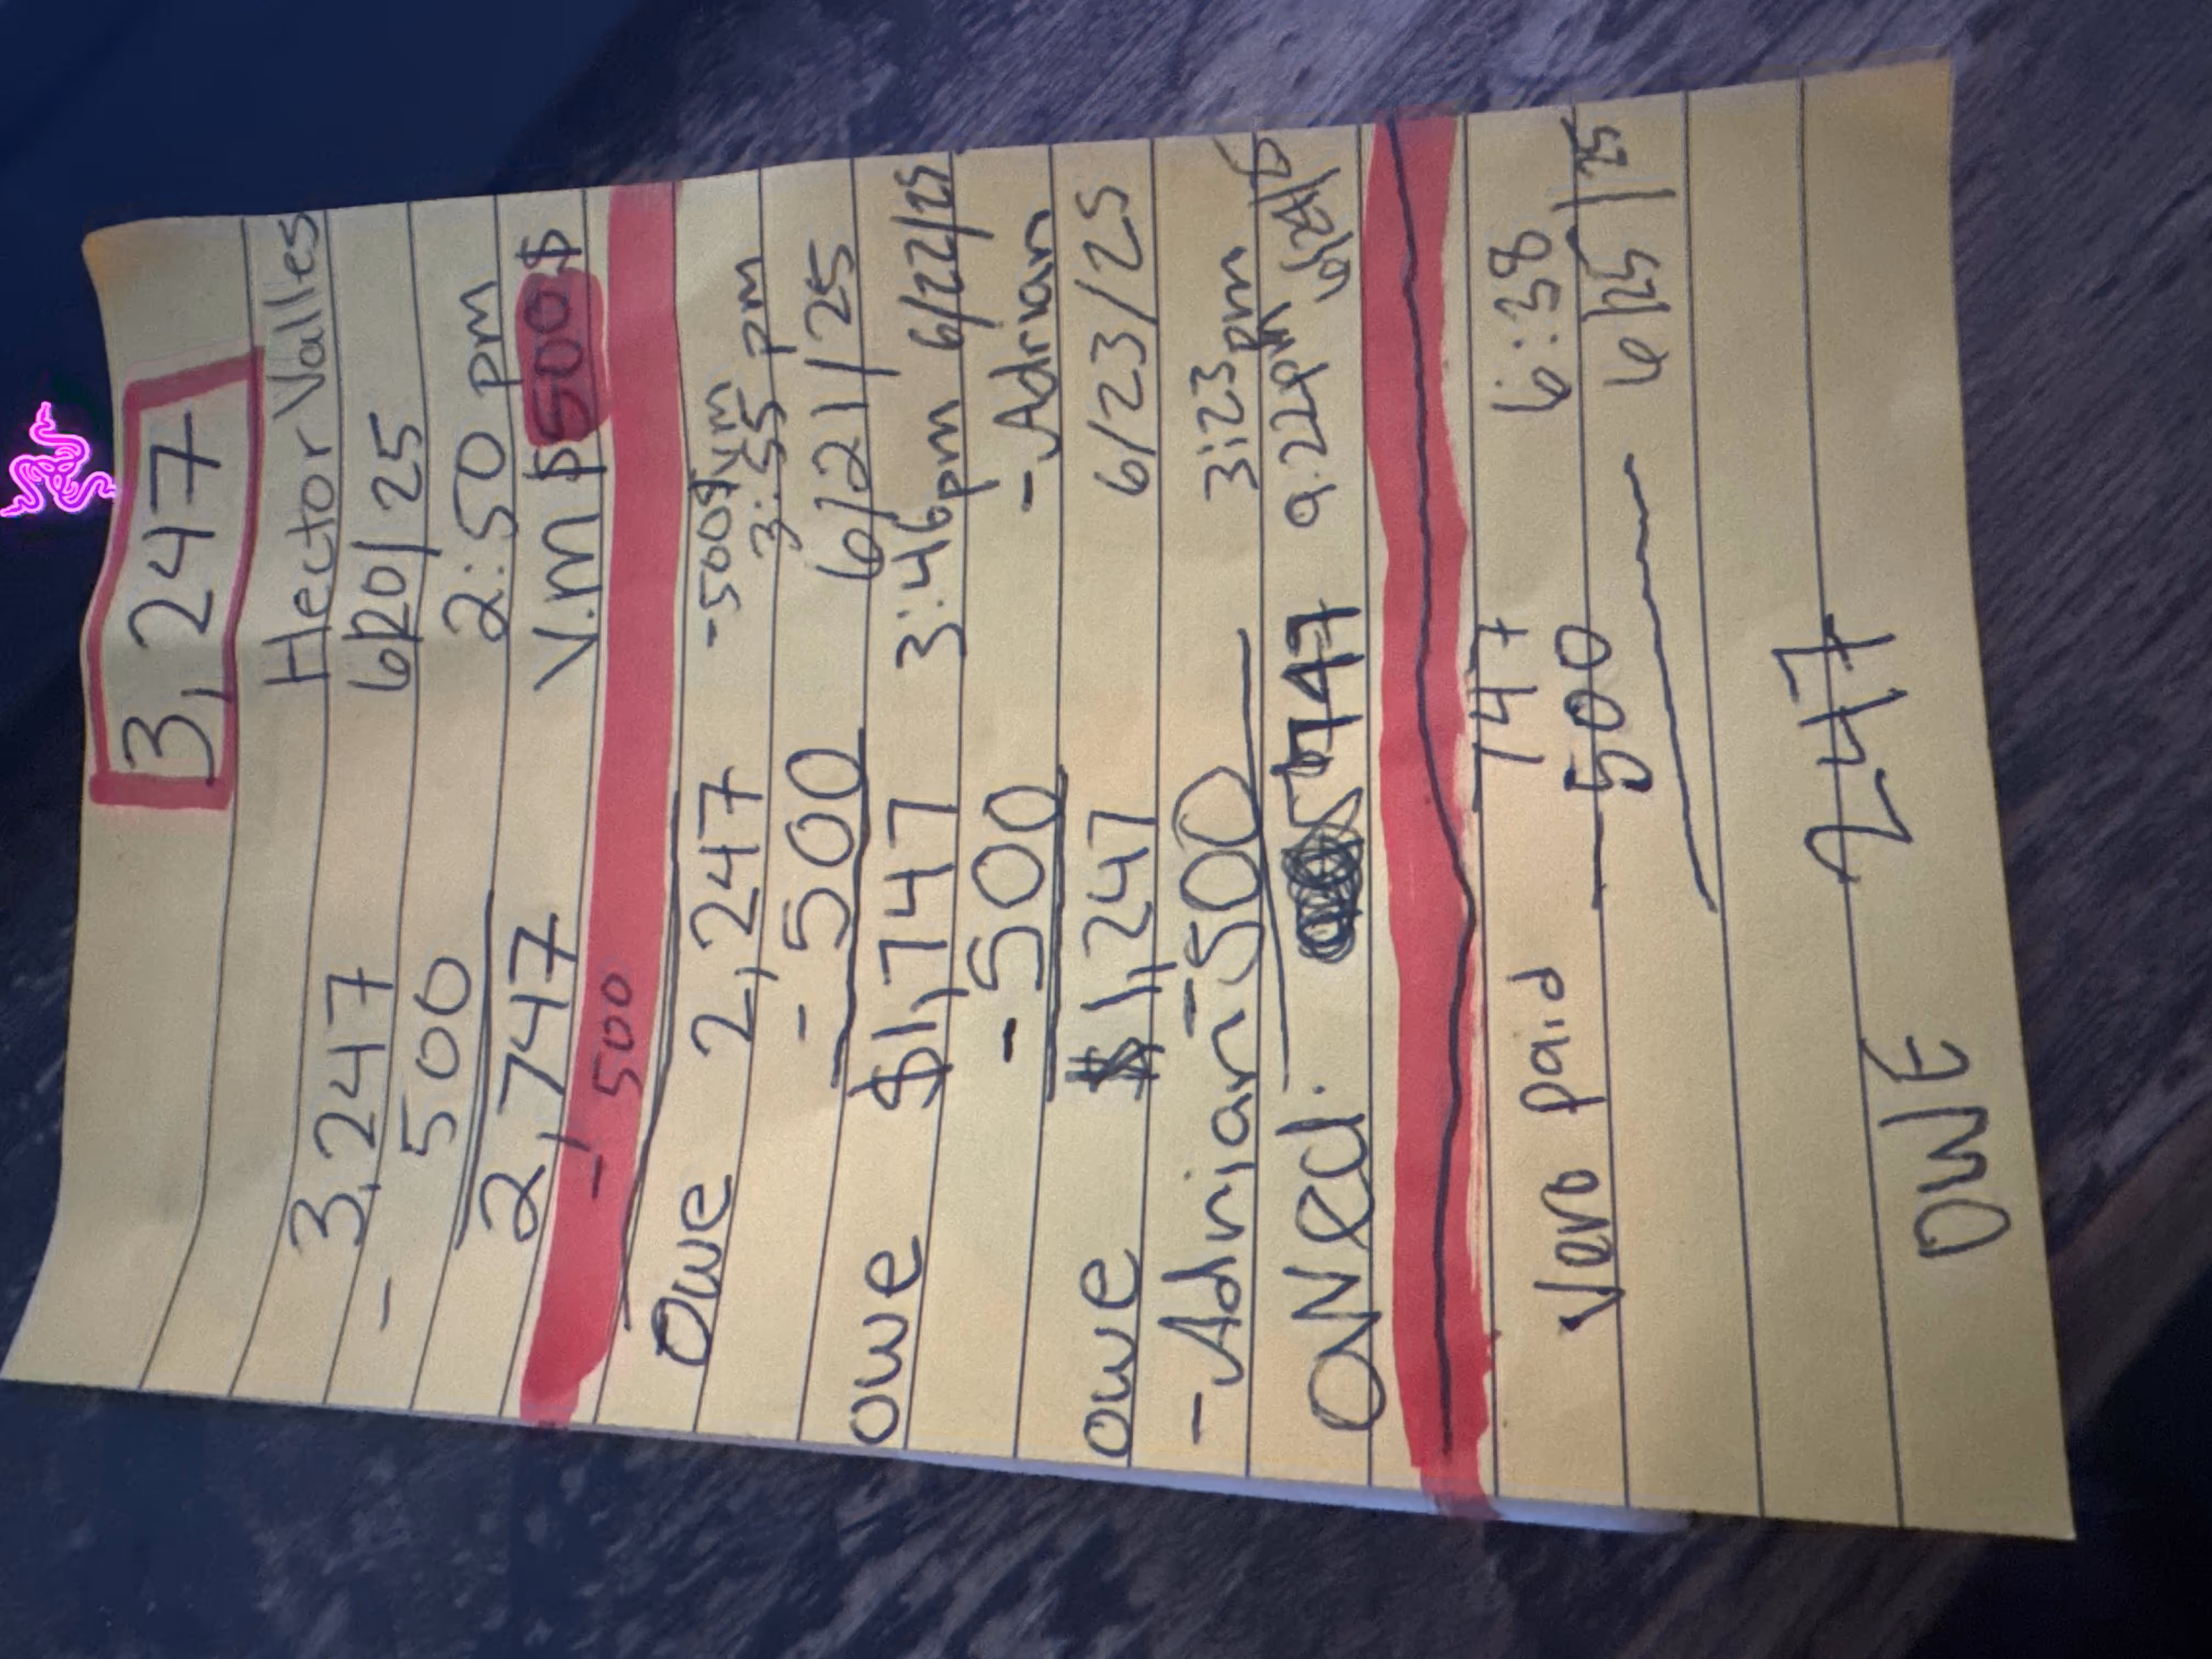 3,247
Hector Valles
3,247 6/20/25
- 500 2:50 pm
2,747 V.m $500$
- 500
Owe 2,247 -500$ v.m
3:55 pm
- 500 6/21/25
owe $1,747 3:46pm 6/22/25
- 500 -Adrian
owe $1,247 6/23/25
-Adrian -500 3:23pm
OWed: 747 9:22pm 6/24/25
747 6:38
Vero paid - 500 6/25/25
OWE 247